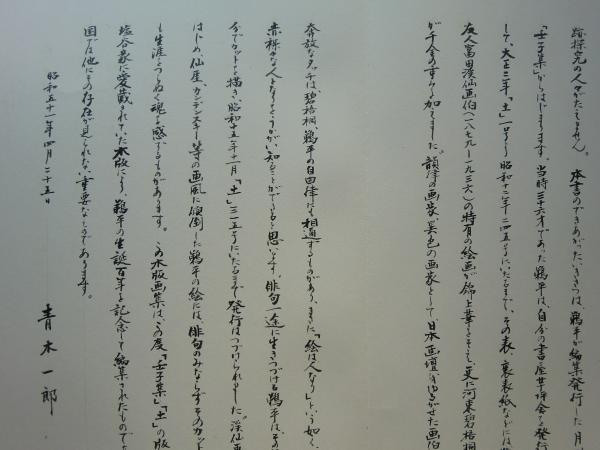 跡探究の人々がたえません。 本書のできあがったいきさつは、鵜平が編集発行した月
「壬子集」からはじまります。当時三十六才であった鵜平は、自分の書屋草坪舎から発行
して、大正二年「土」一号より昭和十二年二四五号にいたるまで、その表、裏表紙などには
友人富田渓仙画伯(一八七九ー一九三六)の特有の絵画が錦上華をそえ、更に河東碧梧桐
が千金のすみを加えました。韻律の画家、異色の画家として、日本画壇をゆるがせた画伯
奔放なタッチは碧梧桐、鵜平の自由律にも相通ずるものがあり、まさに「絵は人なり」という如く、
赤裸々な人となりをうかがい知ることができると思います。俳句一途に生きつづける鵜平は、その
分でカットを描き、昭和十五年十一月「土」三一五号にいたるまで発行はつづけられました。渓仙画
はじめ、仙厓、カンデンスキー等の画風に傾倒した鵜平の絵には、俳句のみならずそのカット
も生涯をつらぬく魂を感ずるものがあります。 この木版画集は、この度「壬子集」「土」の版
塩谷家に愛蔵されていた木版により、鵜平の生誕百年を記念して編集されたもので
国では他にその存在が見られない重要なものであります。
昭和五十一年四月二十五日
青木一郎